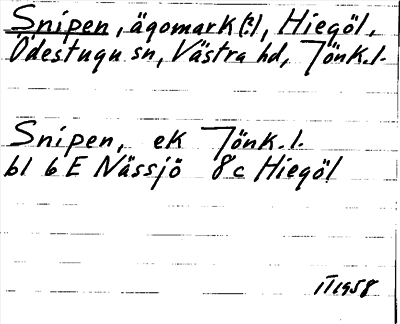 Snipen, ägomark (?), Hiegöl,
Ödestugu sn, Västra hd, Jönk. l.
Snipen, ek Jönk. l.
bl 6 E Nässjö 8c Hiegöl
IT 1958